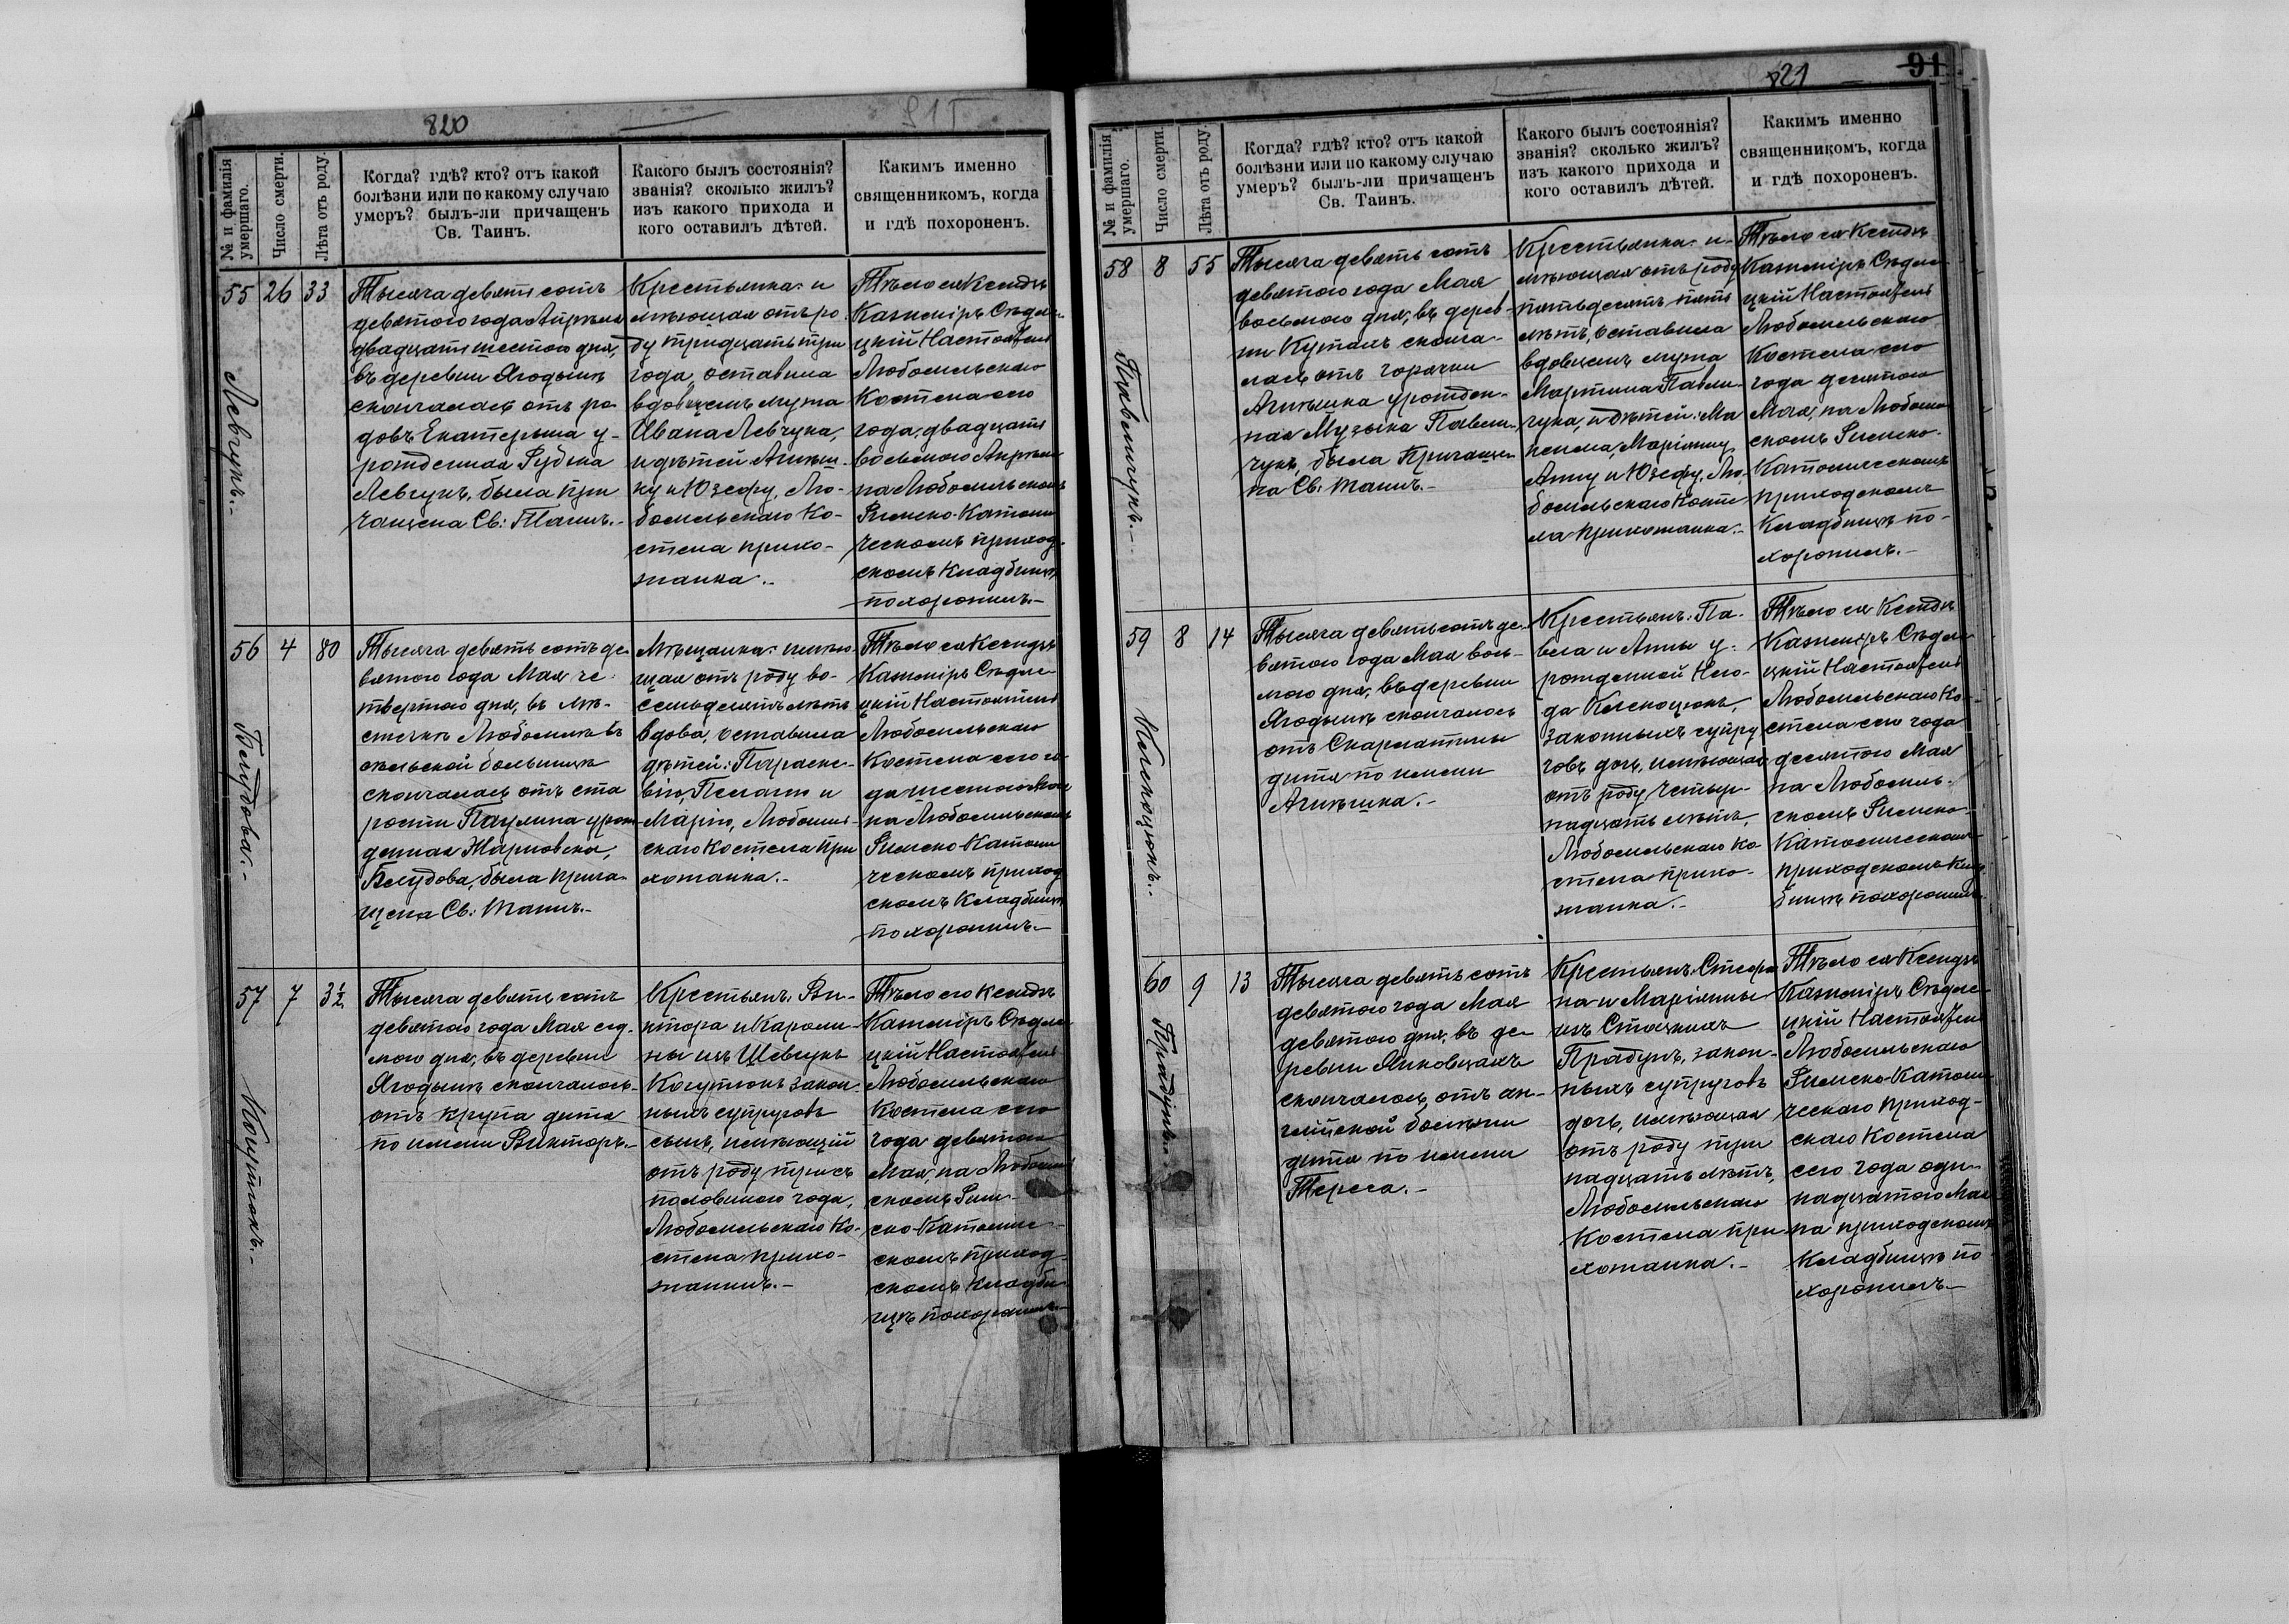 820
№ и фамилія умершаго.
Число смерти.
Лѣта отъ роду.
Когда? гдѣ? кто? отъ какой
болѣзни или по какому случаю
умеръ? былъ-ли причащенъ
Св. Таинъ.
Какого былъ состоянія?
званія? сколько жилъ?
изъ какого прихода и
кого оставилъ дѣтей.
Какимъ именно
священникомъ, когда
и гдѣ похороненъ.
55
Левчукъ.
26
33
Тысяча девять сотъ
девятого года Апрѣля
двадцать шестого дня,
въ деревни Ягодынѣ
скончалась отъ ро-
довъ Екатерина у-
рожденная
Левчукъ, была при
чащена Св: Таинъ.-
Крестьянка и
мѣющая отъ ро
ду тридцать три
года, оставила
вдовцемъ мужа
Ивана Левчука,
и дѣтей Агнѣш-
ку и Юзефу, Лю-
бомльскаго Ко-
стела прихо-
жанка.-
Тѣло ея Ксендзъ
Казиміръ Сѣдле-
цкій Настоятель
Любомльскаго
Костела сего
года, двадцать
восьмого Апрѣля
на Любомльскомъ
Римско-Католи
ческомъ приход-
скомъ Кладбищѣ
похоронилъ.-
56
Блудова.-
4
80
Тысяча девять сотъ де
вятого года Мая че-
твертого дня, въ мѣ-
стечкѣ Любомлѣ въ
сельской больницѣ
скончалась отъ ста
рости Паулина урож
денная
Блудова, была прича-
щена Св: Таинъ.-
Мѣщанка имѣю
щая отъ роду во-
семьдесятъ лѣтъ
вдова, оставила
дѣтей: Параске-
вію, Пелагію и
Марію, Любомль-
скаго Костела при
хожанка.-
Тѣло ея Ксендзъ
Казиміръ Сѣдле-
цкій Настоятель
Любомльскаго
Костела сего го-
да шестого Мая
на Любомльскомъ
Римско-Католи
ческомъ приход
скомъ Кладбищѣ
похоронилъ.-
57
Когутюкъ.-
7
3½
Тысяча девять сотъ
девятого года Мая сед-
мого дня, въ деревни
Ягодынѣ скончалось
отъ крупа дитя
по имени Викторъ.-
Крестьянъ: Ви-
ктора и Кароли-
ны изъ Шевчукъ
Когутюкъ закон-
ныхъ супруговъ
сынъ, имѣющій
отъ роду три съ
половиною года,
Любомльскаго Ко-
стела прихо-
жанинъ.-
Тѣло его Ксендзъ
Казиміръ Сѣдле-
цкій Настоятель
Любомльскаго
Костела сего
года девятого
Мая, на Любомль
скомъ Рим-
ско-Католиче-
скомъ приход-
скомъ кладби-
щѣ похоронилъ.-
821
91
№ и фамилія умершаго.
Число смерти.
Лѣта отъ роду.
Когда? гдѣ? кто? отъ какой
болѣзни или по какому случаю
умеръ? былъ-ли причащенъ
Св. Таинъ.
Какого былъ состоянія?
званія? сколько жилъ?
изъ какого прихода и
кого оставилъ дѣтей.
Какимъ именно
священникомъ, когда
и гдѣ похороненъ.
58
Павлингукъ.-
8
55
Тысяча девять сотъ
девятого года Мая
восьмого дня, въ дерев-
ни Кутахъ сконча-
лась отъ горячки
Агнѣшка урожден-
ная Музыка Павли-
чукъ, была Причаще
на Св: Таинъ.-
Крестьянка и-
мѣющая отъ роду
пятьдесятъ пять
лѣтъ, оставила
вдовцемъ мужа
Мартина Павли-
чука, и дѣтей: Ма
Маріянну,
Анну и Юзефу, Лю-
бомльскаго Косте
ла прихожанка.-
Тѣло ея Ксендзъ
Казиміръ Сѣдле-
цкій Настоятель
Любомльскаго
Костела сего
года десятого
Мая, на Любомль
скомъ Римско-
Католическомъ
приходскомъ
Кладбищѣ по-
хоронилъ.-
59
8
14
Тысяча девять сотъ де-
вятого года Мая вось-
мого дня, въ деревни
Ягодынѣ скончалось
отъ Скарлатины
дитя по имени
Агнѣшка.-
Крестьянъ: Па-
вла и Анны у-
рожденной
законныхъ супру
говъ дочь, имѣющая
отъ роду четыр-
надцать лѣтъ,
Любомльскаго Ко-
стела прихо-
жанка.-
Тѣло ея Ксендзъ
Казиміръ Сѣдле-
цкій Настоятель
Любомльскаго Ко-
стела сего года
десятого Мая
на Любомль-
скомъ Римско-
Католическомъ
приходскомъ Клад
бищѣ похоронилъ.
60
Прадунъ.-
9
13
Тысяча девять сотъ
девятого года Мая
девятого дня, въ де-
ревни Янковцахъ
скончалось отъ ан-
глійской болѣзни
дитя по имени
Тереса.-
Крестьянъ Стефа
на и Маріянны
изъ
Прадунъ, закон-
ныхъ супруговъ
дочь, имѣющая
отъ роду три
надцать лѣтъ,
Любомльскаго
Костела при
хожанка.-
Тѣло ея Ксендзъ
Казиміръ Сѣдле-
цкій Настоятель
Любомльскаго
Римско-Католи
ческаго приход-
скаго Костела
сего года оди-
надцатого Мая
на приходскомъ
Кладбищѣ по-
хоронилъ.-